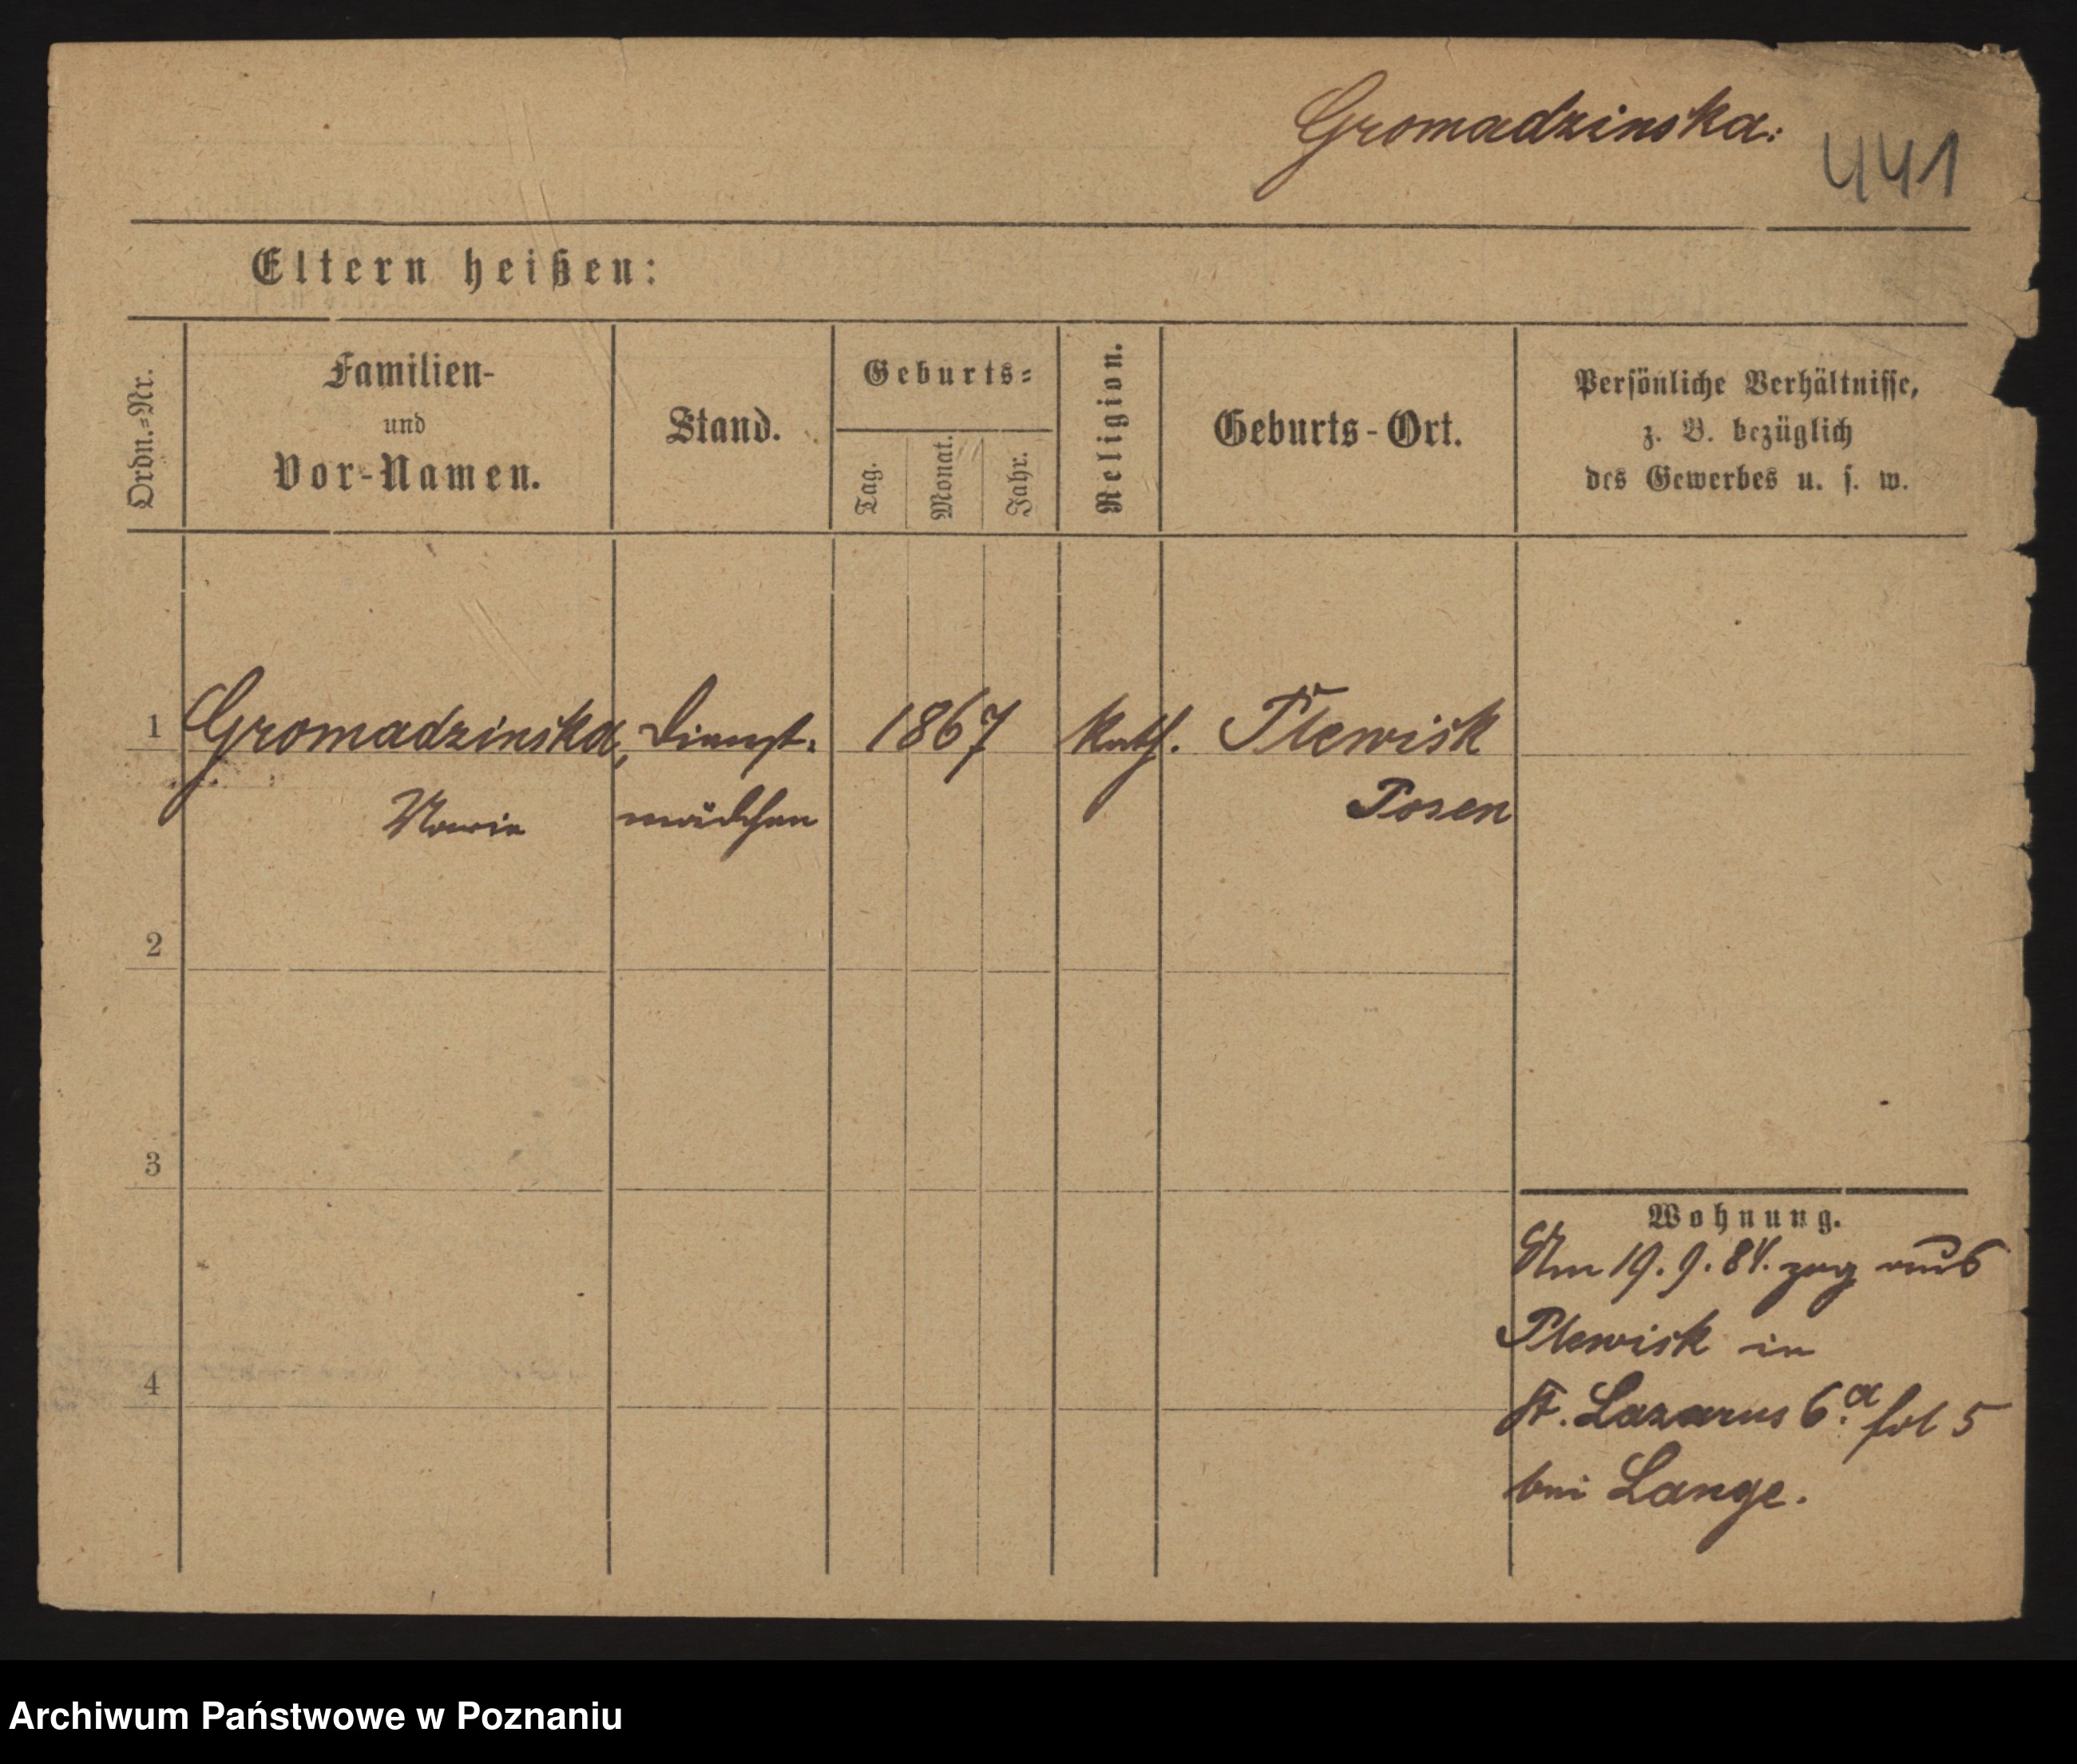 Gromadzinska:
441
Eltern heißen:
Ordn.-Nr.
Familien-
und
Vor-Namen.
Stand.
Geburts-
Tag.
Monat.
Jahr.
Religion.
Geburts-Ort.
Persönliche Verhältnisse,
z. B. bezüglich
des Gewerbes u. s. w.
1 Gromadzinska, Dienst- 1867 kath. Plewisk
Marie mädchen Posen
2
3
Wohnung.
Am 19. 9. 84. zog aus
Plewisk in
4
St. Lazarus 6.a fol 5
bei Lange.
Archiwum Państwowe w Poznaniu